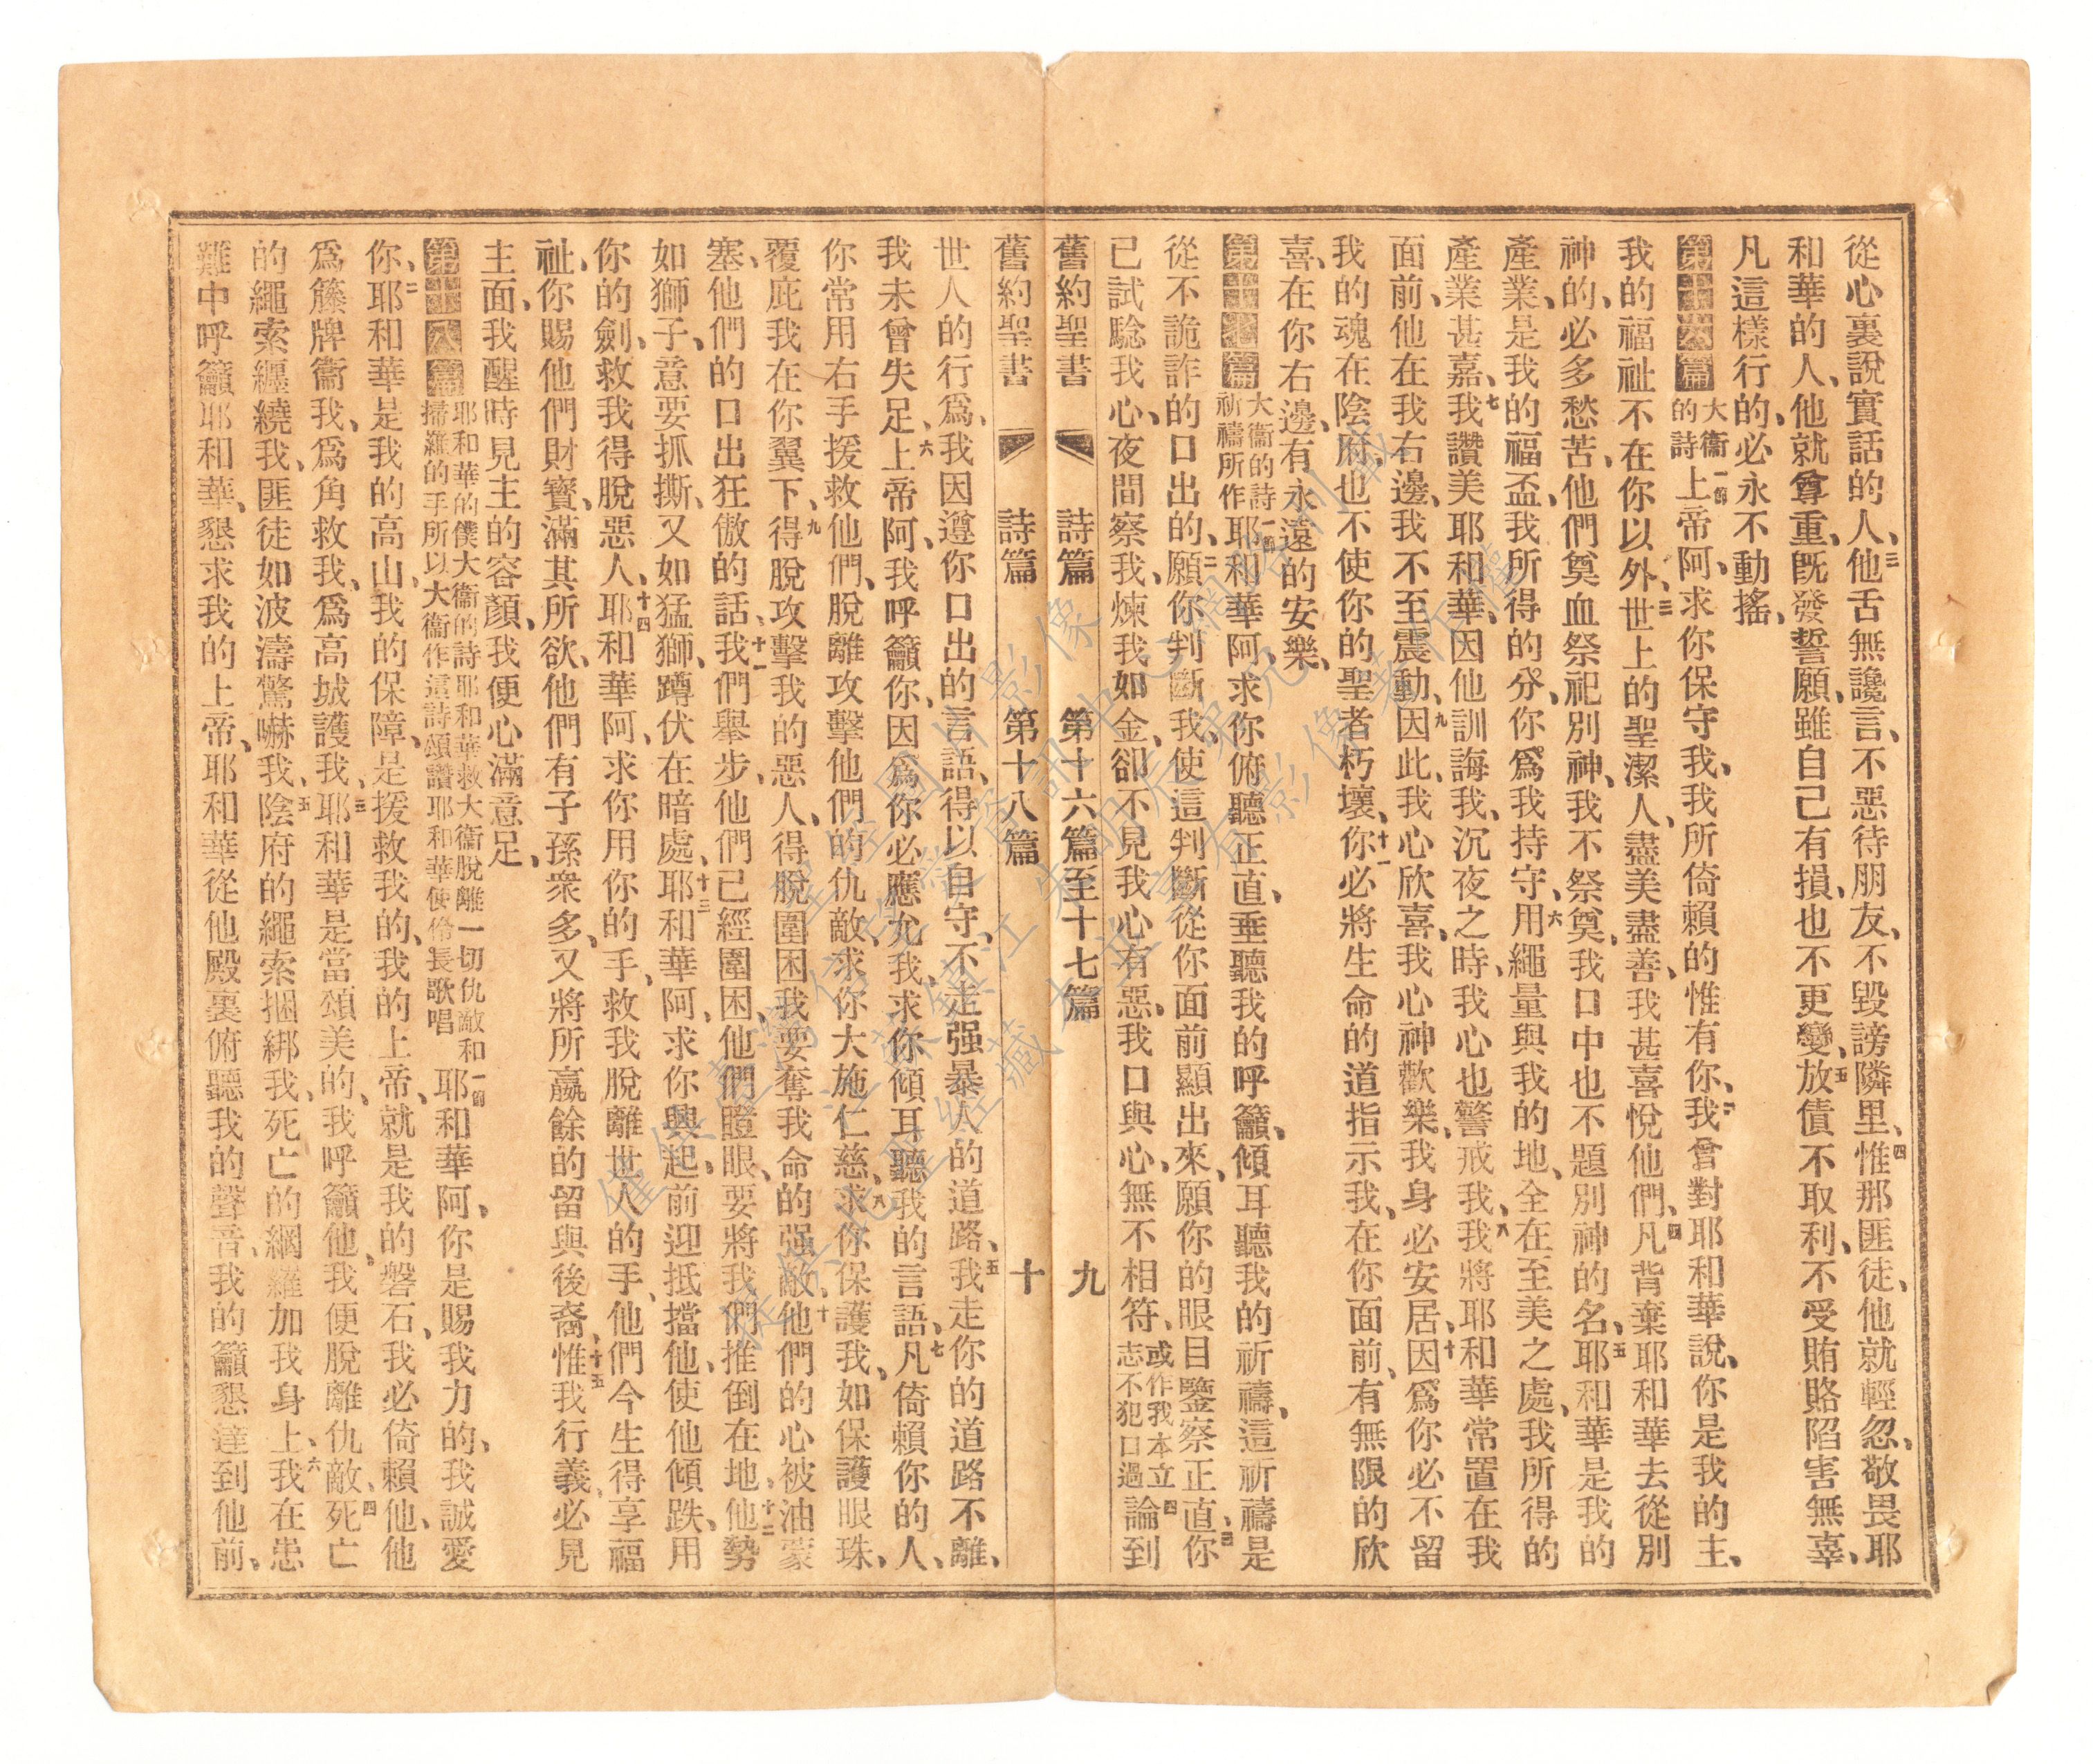 從心裏說實話的人、三他舌無讒言、不惡待朋友、不毀謗隣里、四惟那匪徒、他就輕忽、敬畏耶
和華的人、他就尊重、旣發誓願、雖自己有損、也不更變、五放債不取利、不受賄賂陷害無辜、
凡這樣行的、必永不動搖、
第十六篇 大衞的詩 一節上帝阿、求你保守我、我所倚賴的惟有你、二我曾對耶和華說、你是我的主、
我的福祉不在你以外、三世上的聖潔人、盡美盡善、我甚喜悅他們、四凡背棄耶和華去從別
神的、必多愁苦、他們奠血祭祀別神、我不祭奠、我口中也不題別神的名、五耶和華是我的
產業、是我的福盃、我所得的分、你爲我持守、六用繩量與我的地、全在至美之處、我所得的
產業甚嘉、七我讚美耶和華、因他訓誨我、沉夜之時、我心也警戒我、八我將耶和華常置在我
面前、他在我右邊、我不至震動、九因此、我心欣喜、我心神歡樂、我身必安居、十因爲你必不留
我的魂在陰府、也不使你的聖者朽壞、十一你必將生命的道指示我、在你面前、有無限的欣
喜、在你右邊、有永遠的安樂、
第十七篇 大衞的詩祈禱所作 一節耶和華阿、求你俯聽正直、垂聽我的呼籲、傾耳聽我的祈禱、這祈禱是
從不詭詐的口出的、二願你判斷我、使這判斷從你面前顯出來、願你的眼目鑒察正直、三你
已試騐我心、夜間察我、煉我如金、卻不見我心有惡、我口與心、無不相符、或作我本立志不犯口過 四論到
舊約聖書 詩篇 第十六篇至十七篇 九
舊約聖書 詩篇 第十八篇 十
世人的行爲、我因遵你口出的言語、得以自守、不走强暴人的道路、五我走你的道路不離、
我未曾失足、六上帝阿、我呼籲你、因爲你必應允我、求你傾耳聽我的言語、七凡倚賴你的人、
你常用右手援救他們、脫離攻擊他們的仇敵、求你大施仁慈、八求你保護我、如保護眼珠、
覆庇我在你翼下、九得脫攻擊我的惡人、得脫圍困我要奪我命的强敵、十他們的心被油蒙
塞、他們的口出狂傲的話、十一我們舉步、他們已經圍困、他們瞪眼、要將我們推倒在地、十二他勢
如獅子、意要抓撕、又如猛獅、蹲伏在暗處、十三耶和華阿、求你興起、前迎抵擋他、使他傾跌、用
你的劍、救我得脫惡人、十四耶和華阿、求你用你的手、救我脫離世人的手、他們今生得享福
祉、你賜他們財寶、滿其所欲、他們有子孫衆多、又將所贏餘的留與後裔、十五惟我行義、必見
主面、我醒時見主的容顏、我便心滿意足、
第十八篇 耶和華的僕大衞的詩耶和華救大衞脫離一切仇敵和掃羅的手所以大衞作這詩頌讚耶和華使伶長歌唱 一節耶和華阿、你是賜我力的、我誠愛
你、二耶和華是我的高山、我的保障、是援救我的、我的上帝、就是我的磐石、我必倚賴他、他
爲籐牌衞我、爲角救我、爲高城護我、三耶和華是當頌美的、我呼籲他、我便脫離仇敵、四死亡
的繩索纏繞我、匪徒如波濤驚嚇我、五陰府的繩索捆綁我、死亡的網羅加我身上、六我在患
難中呼籲耶和華、懇求我的上帝、耶和華從他殿裏俯聽我的聲音、我的籲懇達到他前、